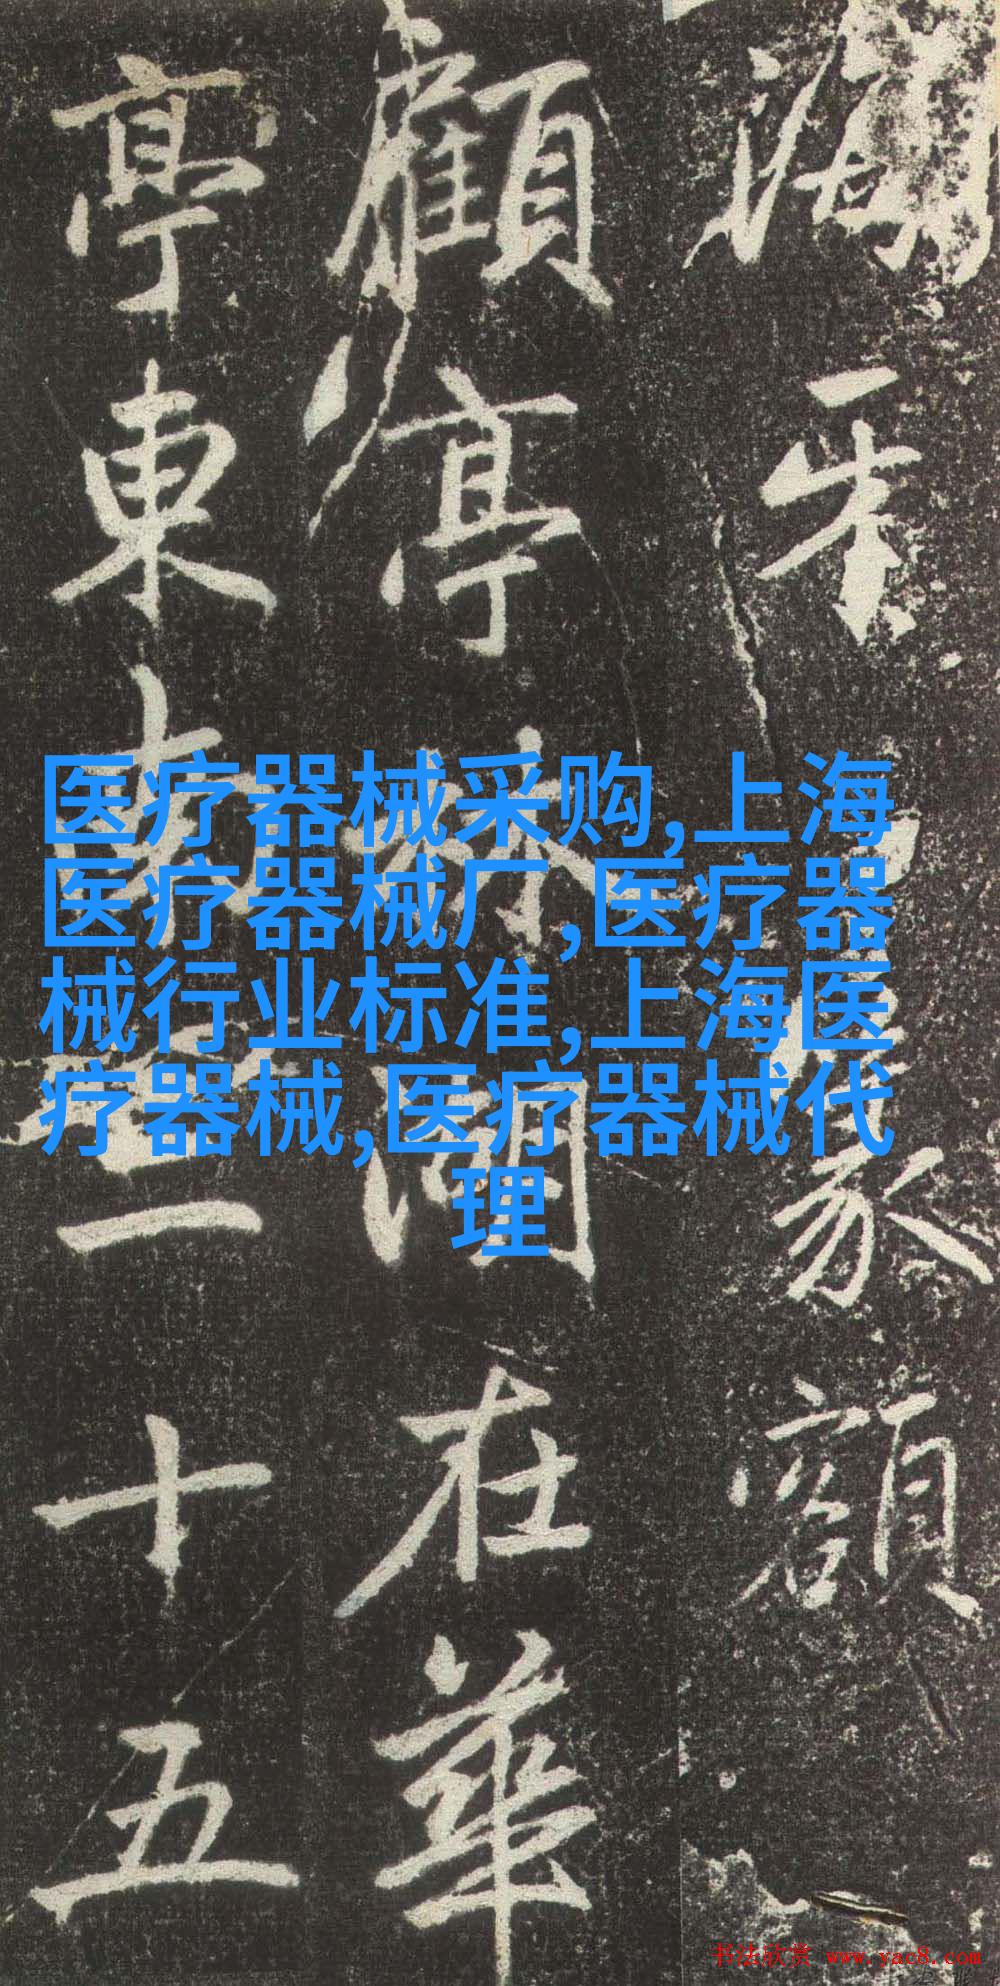 并書篆額
顧亭林湖在華
亭東南三十五
医疗器械采购,上海
医疗器械厂,医疗器
械行业标准,上海医
疗器械,医疗器械代
理
书法欣赏 www.yac8.com